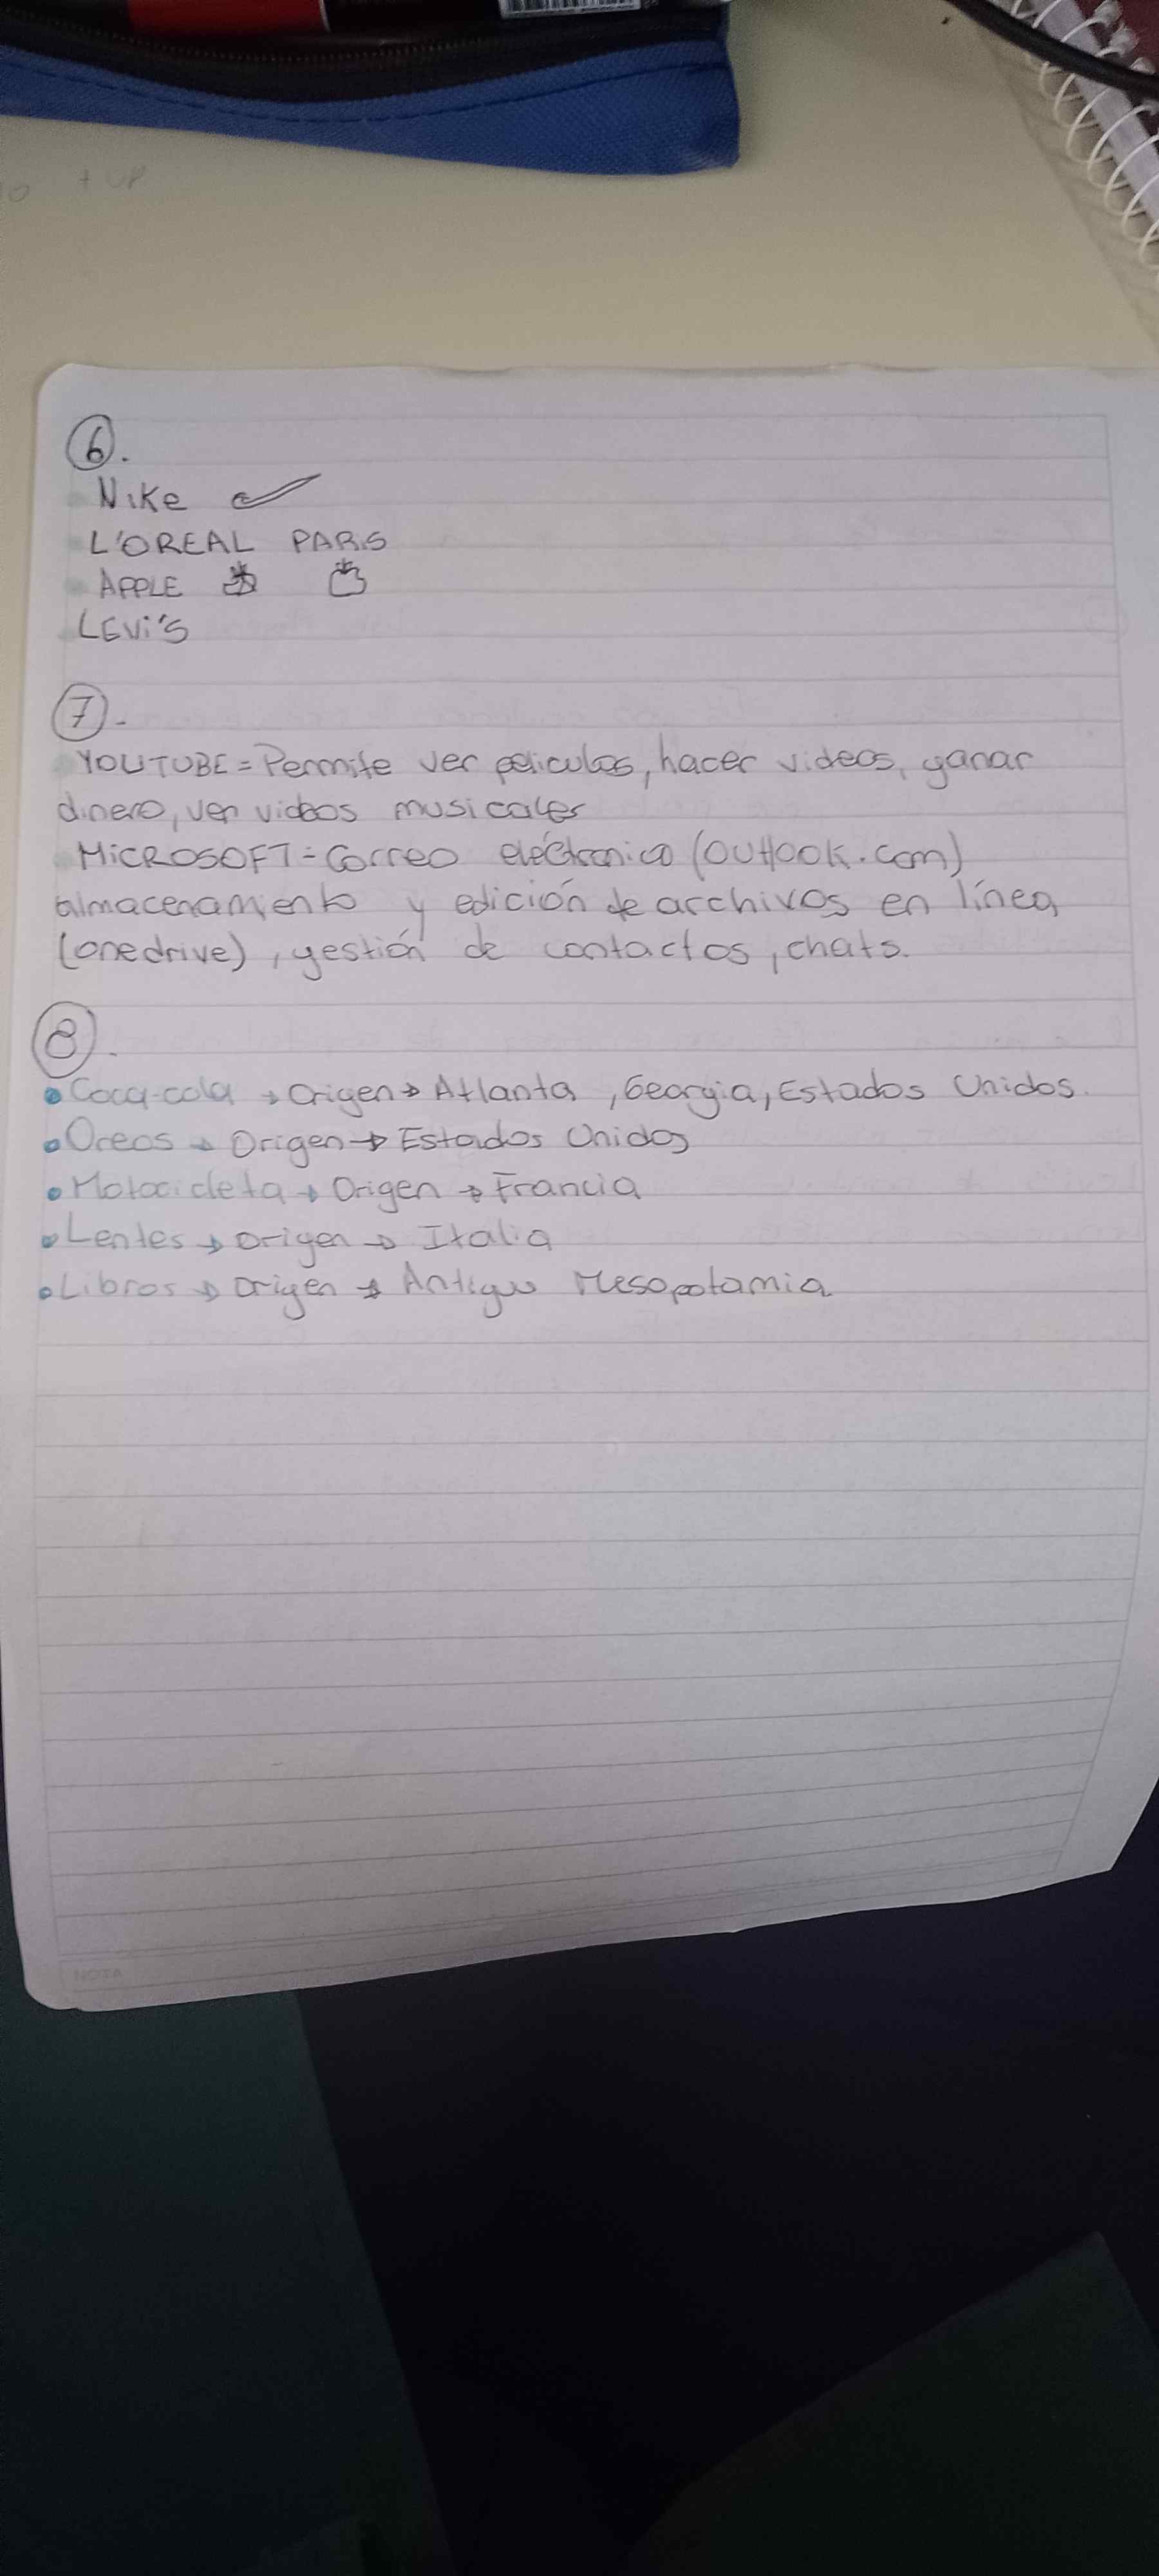 + UP
6.
Nike
L'OREAL PARIS
APPLE
LEVi'S
7.-
YOUTUBE = Permite ver peliculas, hacer videos, ganar
dinero, ver videos musicales
MiCROSOFT = Correo eléctronico (OUtlook.com)
almacenamiento y edición de archivos en línea
(onedrive), gestión de contactos, chats.
8.
• Coca-cola → Origen → Atlanta, Georgia, Estados Unidos.
• Oreos → Origen → Estados Unidos
• Motocicleta → Origen → Francia
• Lentes → Origen → Italia
• Libros → Origen → Antigua Mesopotamia
NOTA